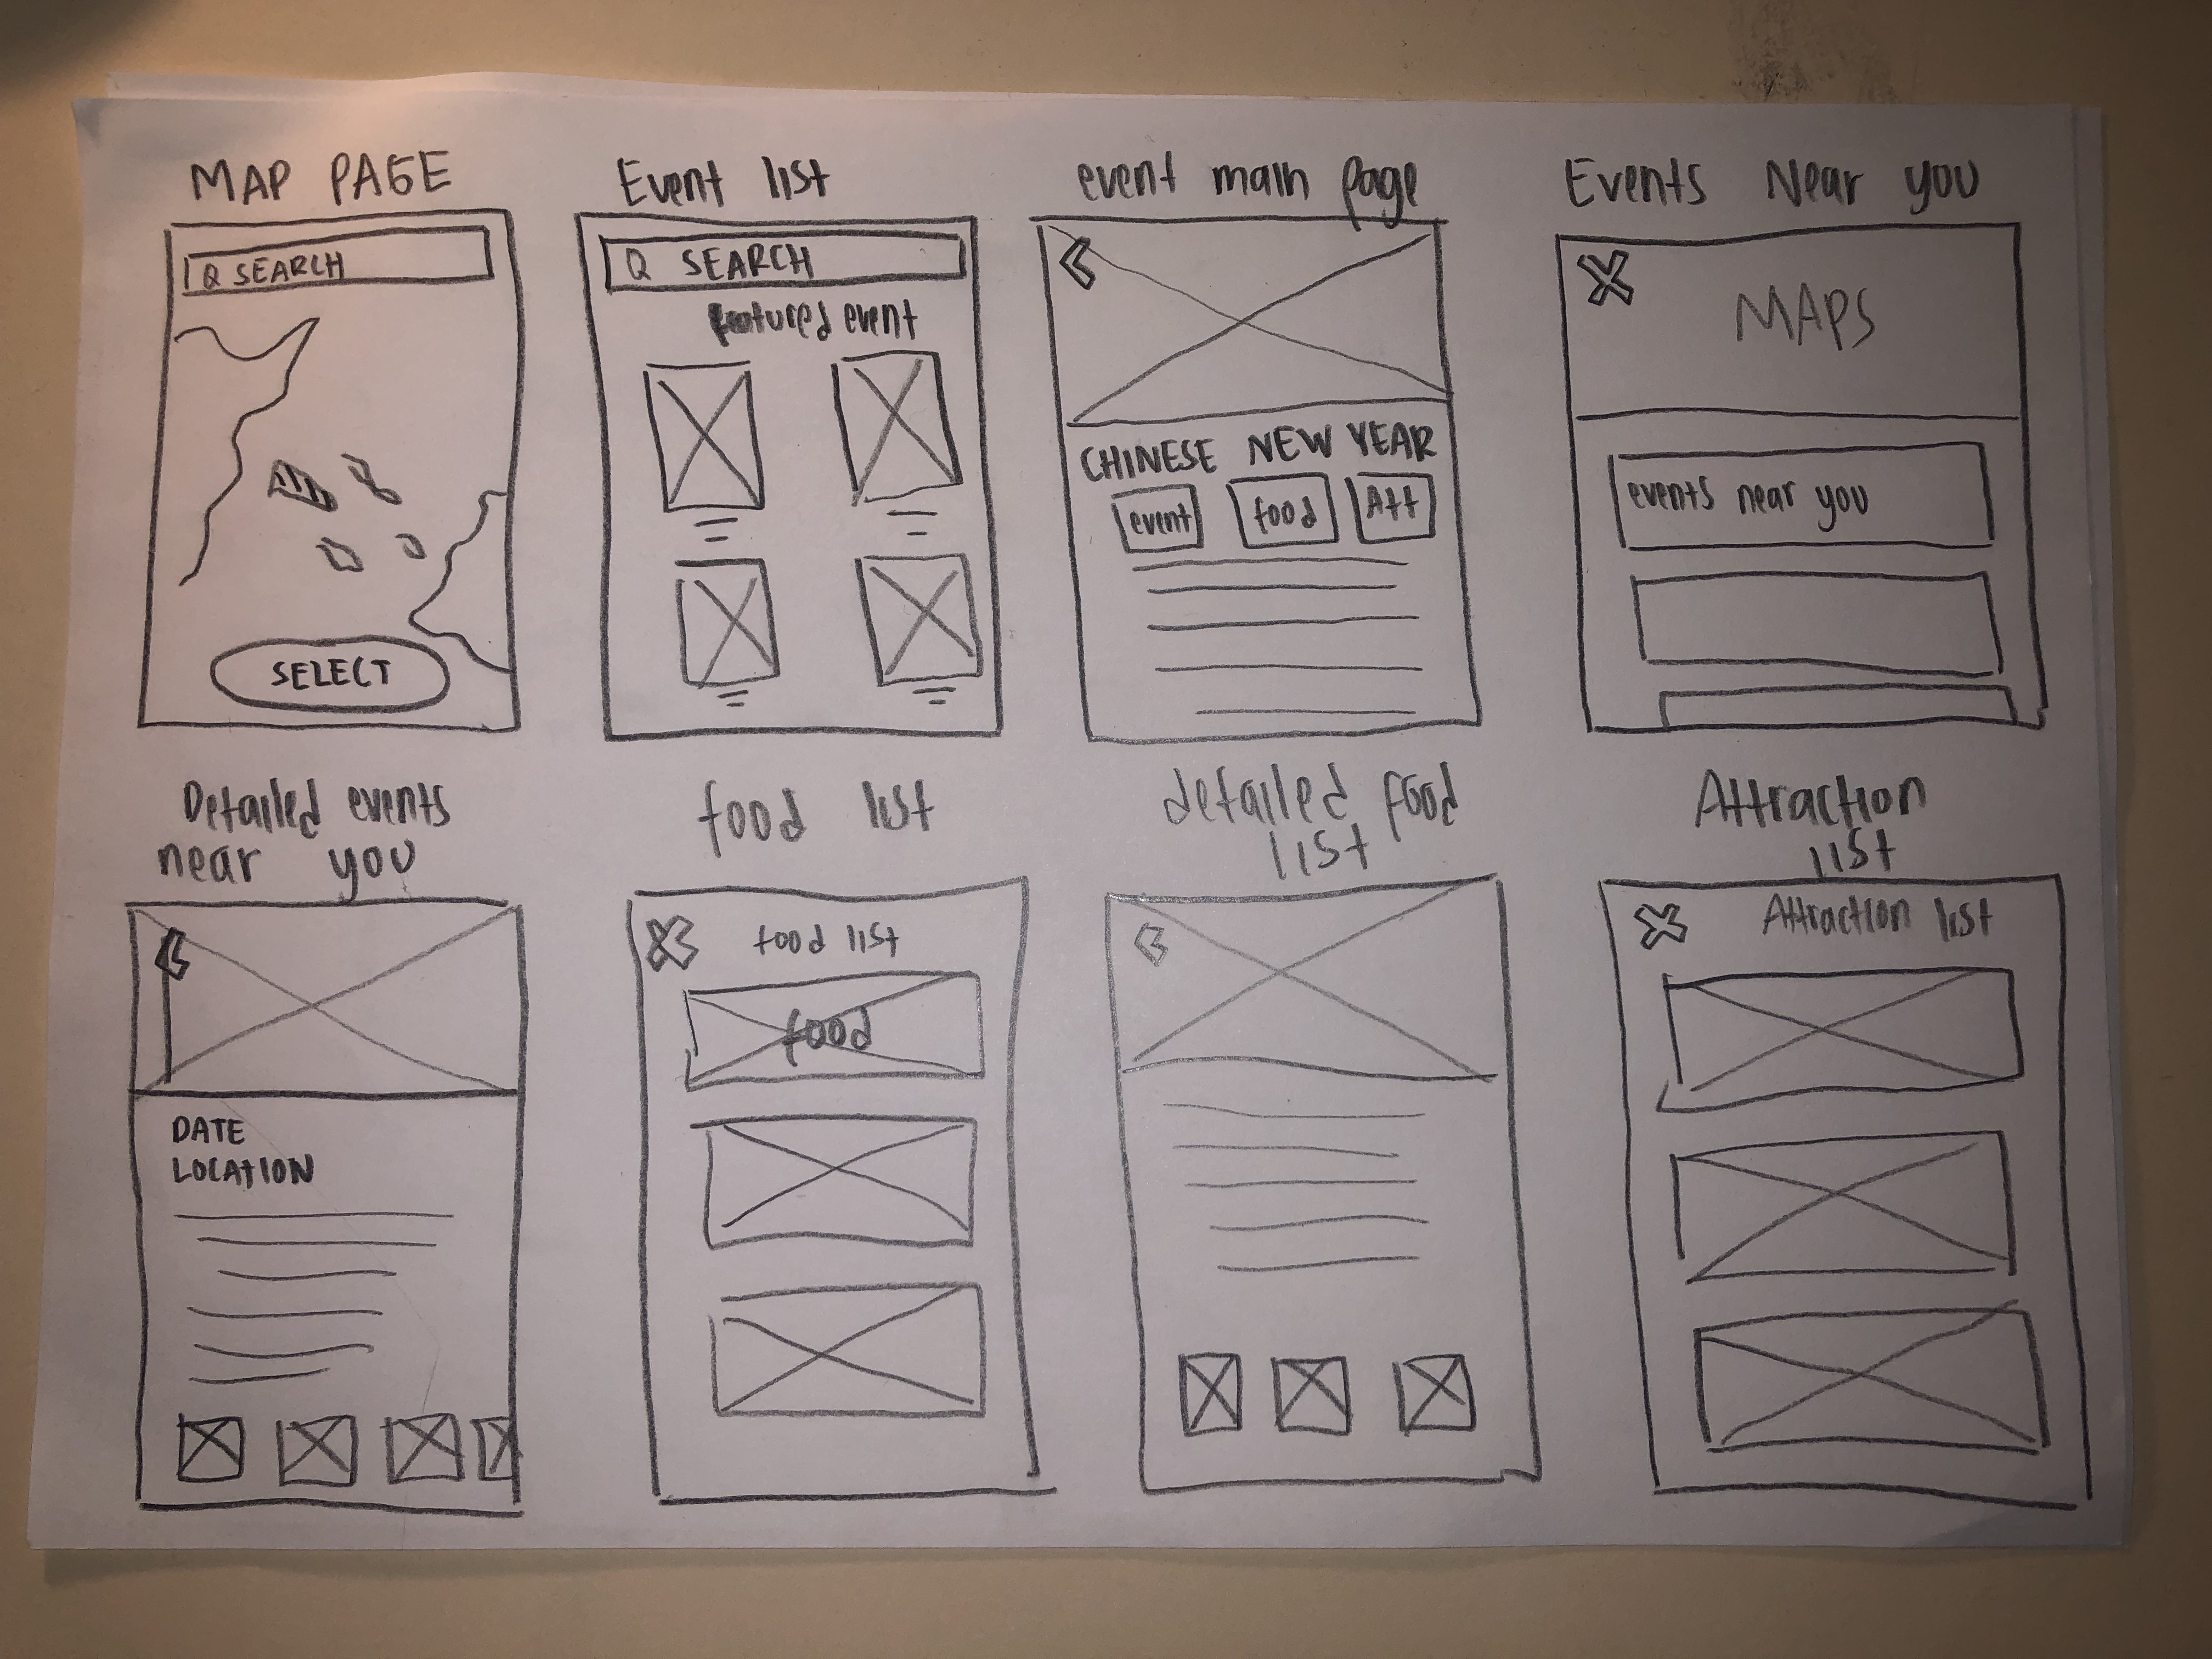 MAP PAGE
SEARCH
SELECT
Event list
SEARCH
featured event
event main page
CHINESE NEW YEAR
event food Att
Events Near you
MAPS
events near you
Detailed events
near you
DATE
LOCATION
food list
food list
food
detailed food
list
Attraction
list
Attraction list